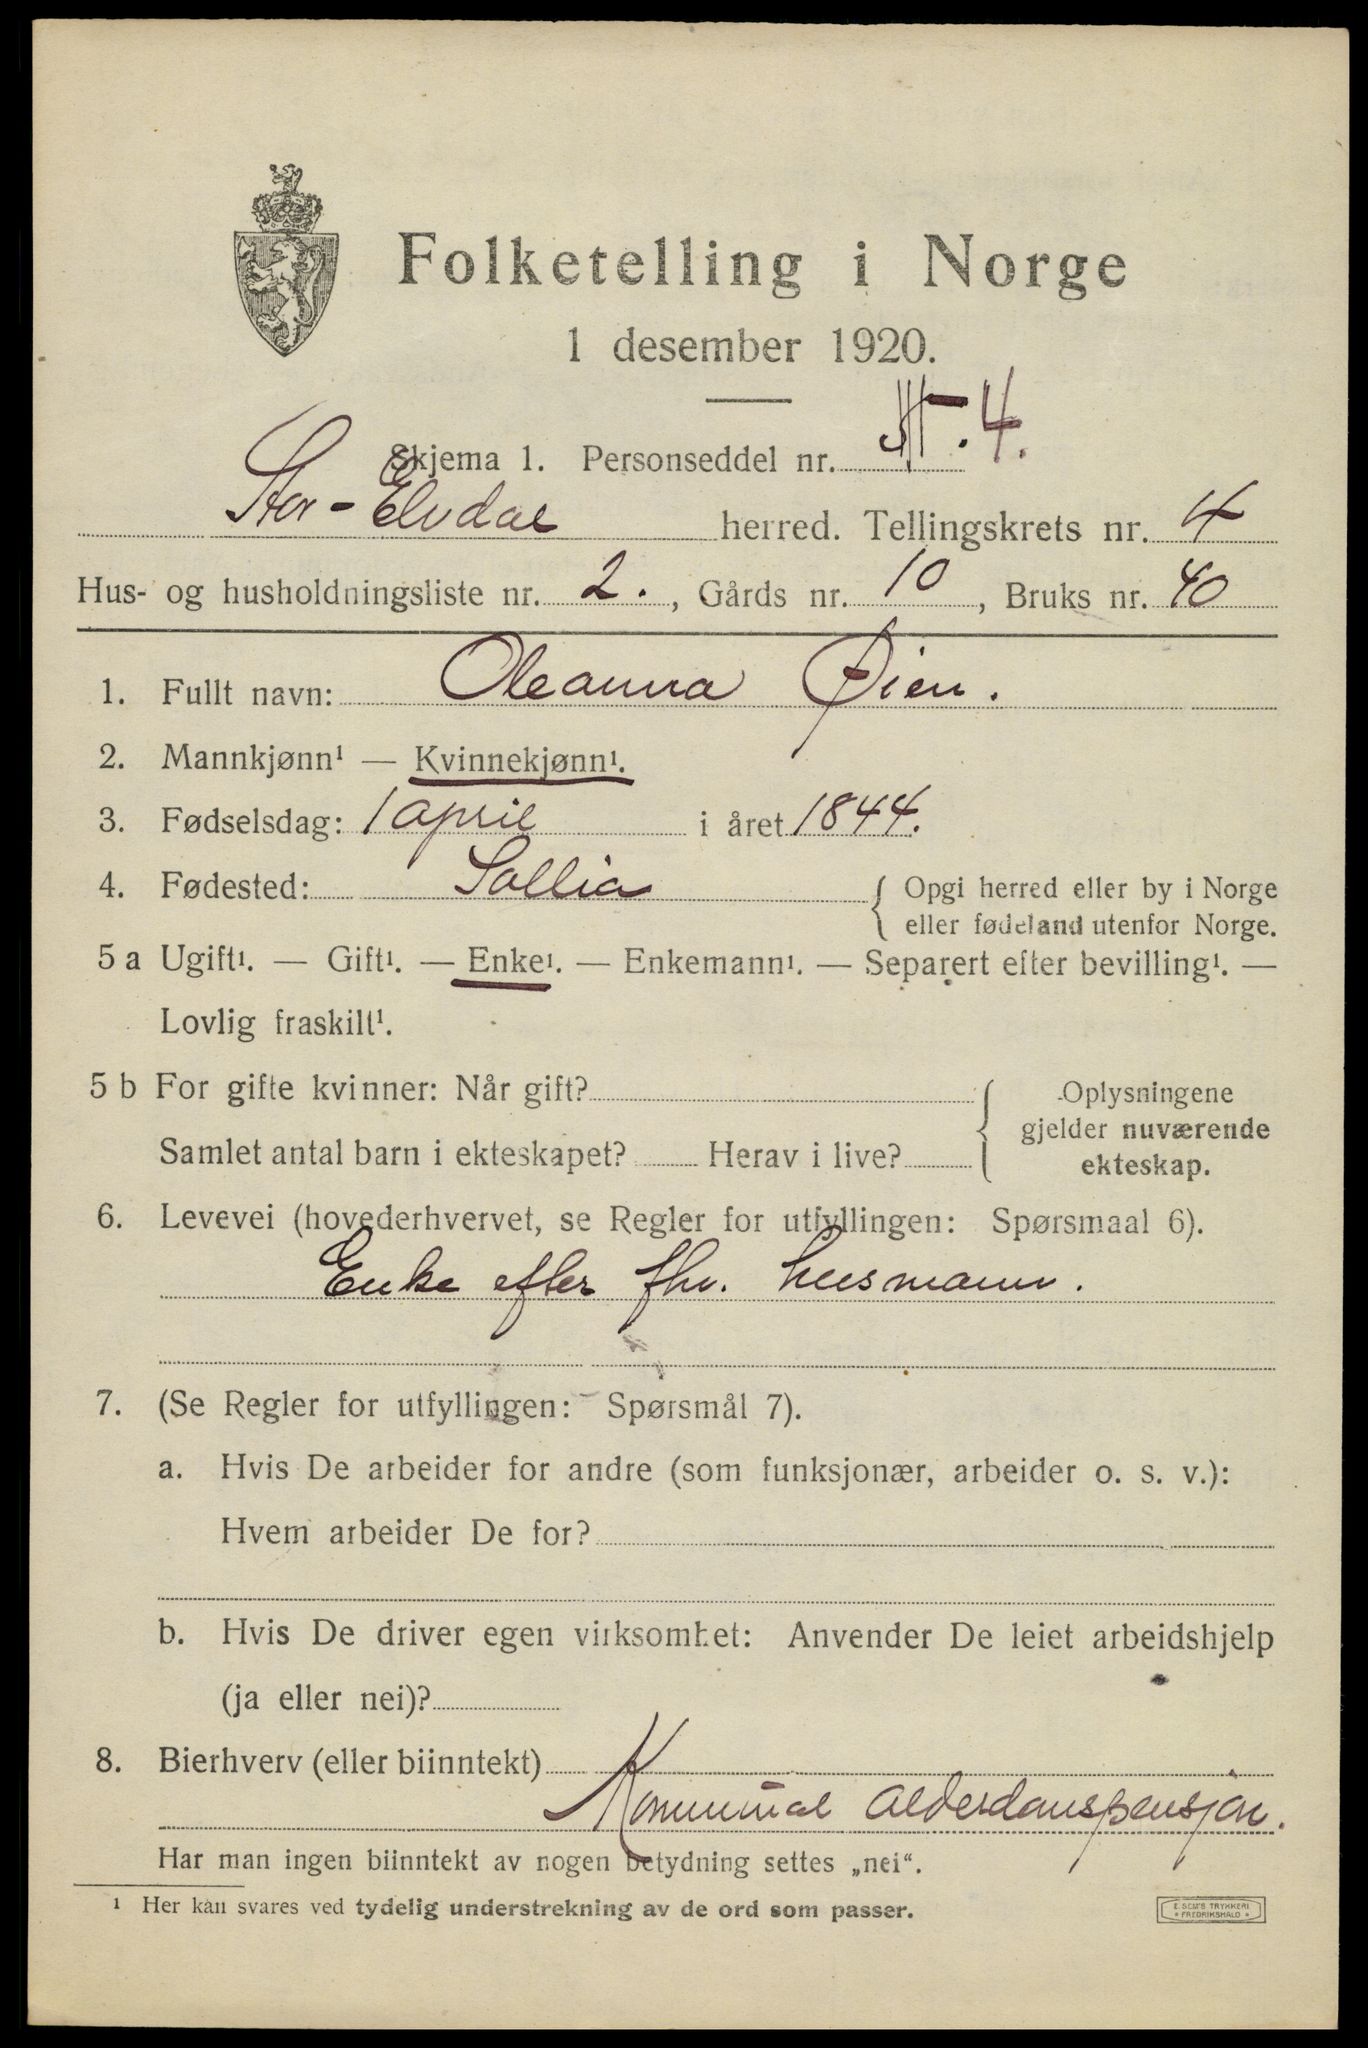 Folketelling i Norge
1 desember 1920.
Skjema 1. Personseddel nr. 4.
Stor-Elvdal herred. Tellingskrets nr. 4
Hus- og husholdningsliste nr. 2. , Gårds nr. 10 , Bruks nr. 40
1. Fullt navn: Oleanna Øien.
2. Mannkjønn¹ — Kvinnekjønn¹.
3. Fødselsdag: 1 april i året 1844.
4. Fødested: Sollia { Opgi herred eller by i Norge
eller fødeland utenfor Norge.
5 a Ugift¹. — Gift¹. — Enke¹. — Enkemann¹. — Separert efter bevilling¹. —
Lovlig fraskilt¹.
5 b For gifte kvinner: Når gift?
Samlet antal barn i ekteskapet? Herav i live?
{ Oplysningene
gjelder nuværende
ekteskap.
6. Levevei (hovederhvervet, se Regler for utfyllingen: Spørsmaal 6).
Enke efter fhv. husmann.
7. (Se Regler for utfyllingen: Spørsmål 7).
a. Hvis De arbeider for andre (som funksjonær, arbeider o. s. v.):
Hvem arbeider De for?
b. Hvis De driver egen virksomhet: Anvender De leiet arbeidshjelp
(ja eller nei)?
8. Bierhverv (eller biinntekt)
Kommunal alderdomspensjon.
Har man ingen biinntekt av nogen betydning settes „nei“.
¹ Her kan svares ved tydelig understrekning av de ord som passer.
E. SEM'S TRYKKERI
* FREDRIKSHALD *